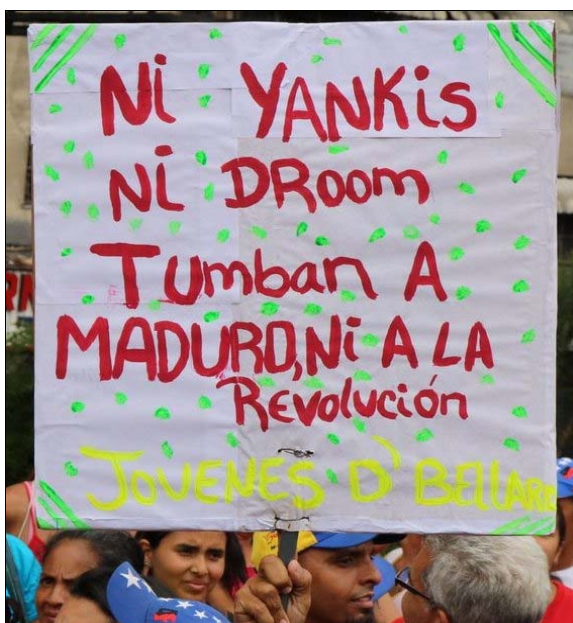 Ni YANKis
Ni DRoom
Tumban A
MADURO, Ni A LA
REvolución
JOVENES D' BELLARE